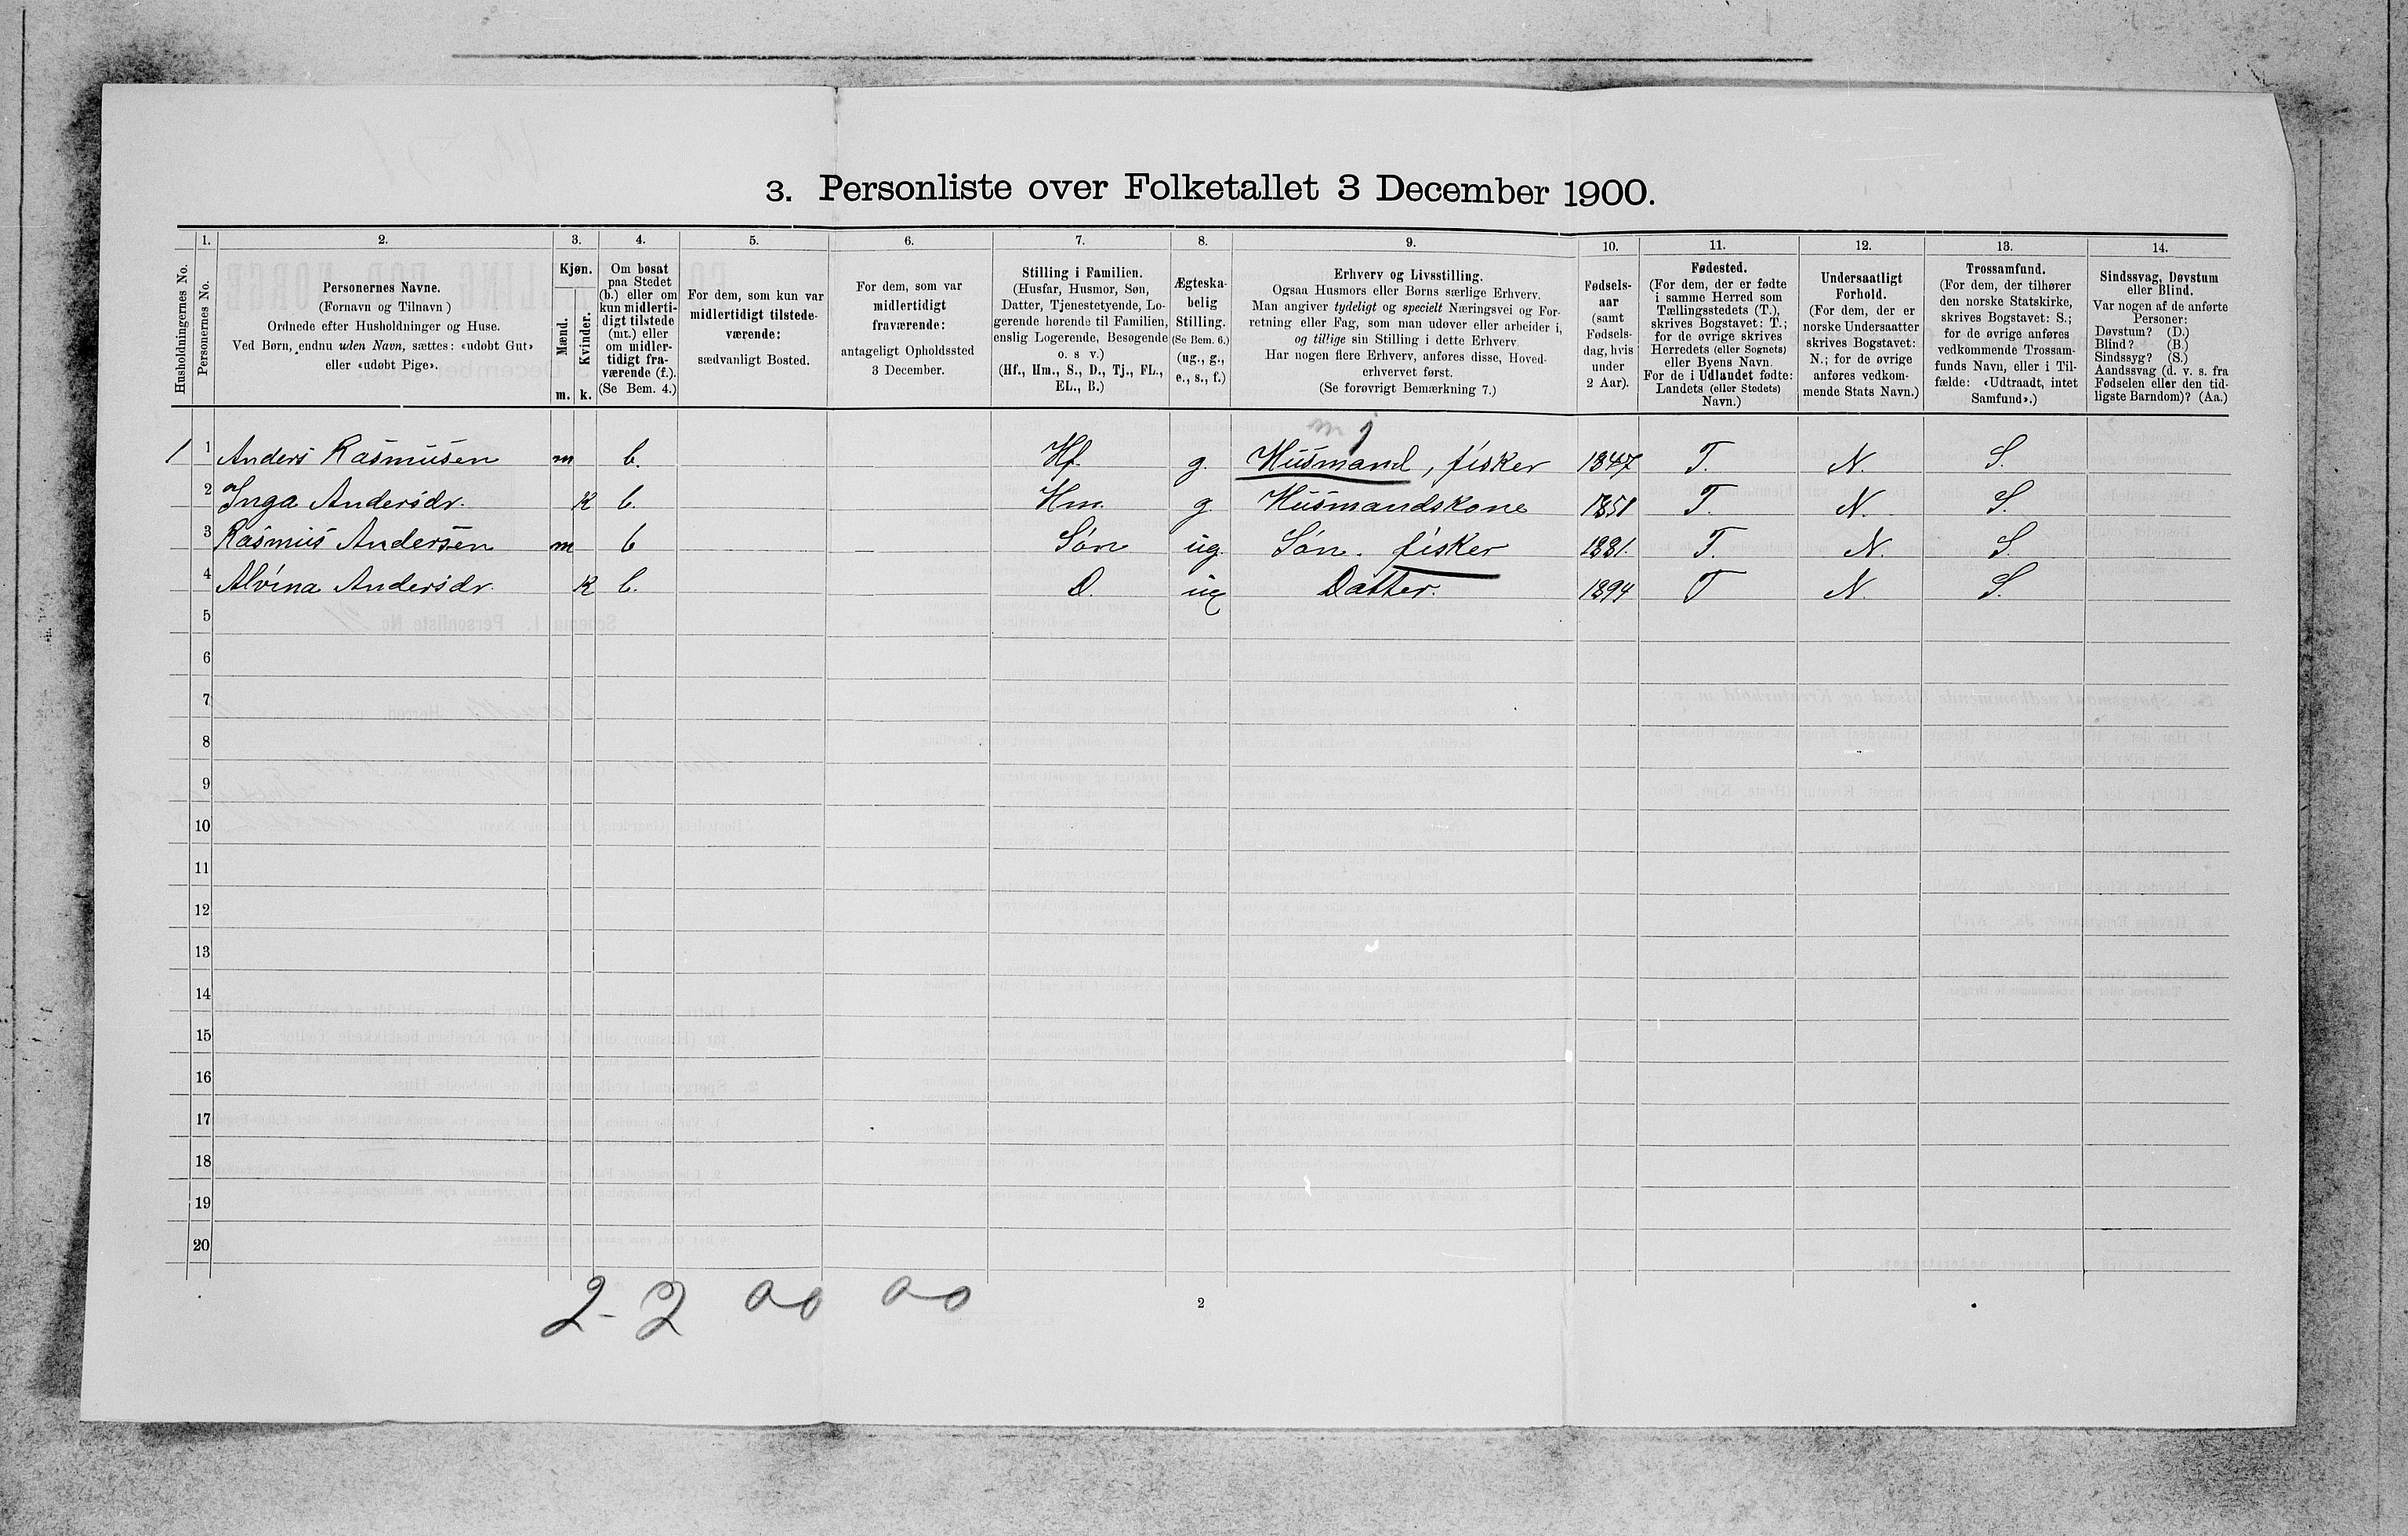 3. Personliste over Folketallet 3 December 1900.
1. 2. 3. 4. 5. 6. 7. 8. 9. 10. 11. 12. 13. 14.
Husholdningernes No.
Personernes No.
Personernes Navne.
(Fornavn og Tilnavn)
Ordnede efter Husholdninger og Huse.
Ved Børn, endnu uden Navn, sættes: «udøbt Gut»
eller «udøbt Pige».
Kjøn.
Mænd.
Kvinder.
m. k.
Om bosat
paa Stedet
(b.) eller om
kun midlerti-
digt tilstede
(mt.) eller
om midler-
tidigt fra-
værende (f.).
(Se Bem. 4.)
For dem, som kun var
midlertidigt tilstede-
værende:
sædvanligt Bosted.
For dem, som var
midlertidigt
fraværende:
antageligt Opholdssted
3 December.
Stilling i Familien.
(Husfar, Husmor, Søn,
Datter, Tjenestetyende, Lo-
gerende hørende til Familien,
enslig Logerende, Besøgende
o. s v.)
(Hf., Hm., S., D., Tj., FL.,
EL., B.)
Ægteska-
belig
Stilling.
(Se Bem. 6.)
(ug., g.,
e., s., f.)
Erhverv og Livsstilling.
Ogsaa Husmors eller Børns særlige Erhverv.
Man angiver tydeligt og specielt Næringsvei og For-
retning eller Fag, som man udøver eller arbeider i,
og tillige sin Stilling i dette Erhverv.
Har nogen flere Erhverv, anføres disse, Hoved-
erhvervet først.
(Se forøvrigt Bemærkning 7.)
Fødsels-
aar
(samt
Fødsels-
dag, hvis
under
2 Aar).
Fødested.
(For dem, der er fødte
i samme Herred som
Tællingsstedets (T.),
skrives Bogstavet: T.;
for de øvrige skrives
Herredets (eller Sognets)
eller Byens Navn.
For de i Udlandet fødte:
Landets (eller Stedets)
Navn.)
Undersaatligt
Forhold.
(For dem, der er
norske Undersaatter
skrives Bogstavet:
N.; for de øvrige
anføres vedkom-
mende Stats Navn.)
Trossamfund.
(For dem, der tilhører
den norske Statskirke,
skrives Bogstavet: S.;
for de øvrige anføres
vedkommende Trossam-
funds Navn, eller i Til-
fælde: «Udtraadt, intet
Samfund».)
Sindssvag, Døvstum
eller Blind.
Var nogen af de anførte
Personer:
Døvstum? (D.)
Blind? (B.)
Sindssyg? (S.)
Aandssvag (d. v. s. fra
Fødselen eller den tid-
ligste Barndom)? (Aa.)
m j
1 1 Anders Rasmusen m b. Hf. g. Husmand, fisker 1847 T. N. S.
2 Inga Andersdr. k b. Hm. g Husmandskone 1851 T. N. S.
3 Rasmus Andersen m b – Søn ug. Søn. fisker 1881. T. N. S.
4 Alvina Andersdr. k b. D. ug Datter. 1894 T N. S.
5
6
7
8
9
10
11
12
13
14
15
16
17
18
19
20
2 - 2 00 00
2